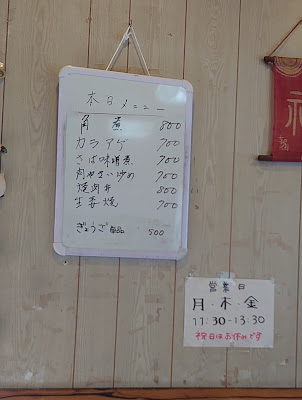 本日メニュー
角煮 800
カラアゲ 700
さば味噌煮 700
肉やさい炒め 700
焼肉丼 800
生姜焼 700
ぎょうざ 単品 500
営業日
月・木・金
11:30-13:30
祝日はお休みです